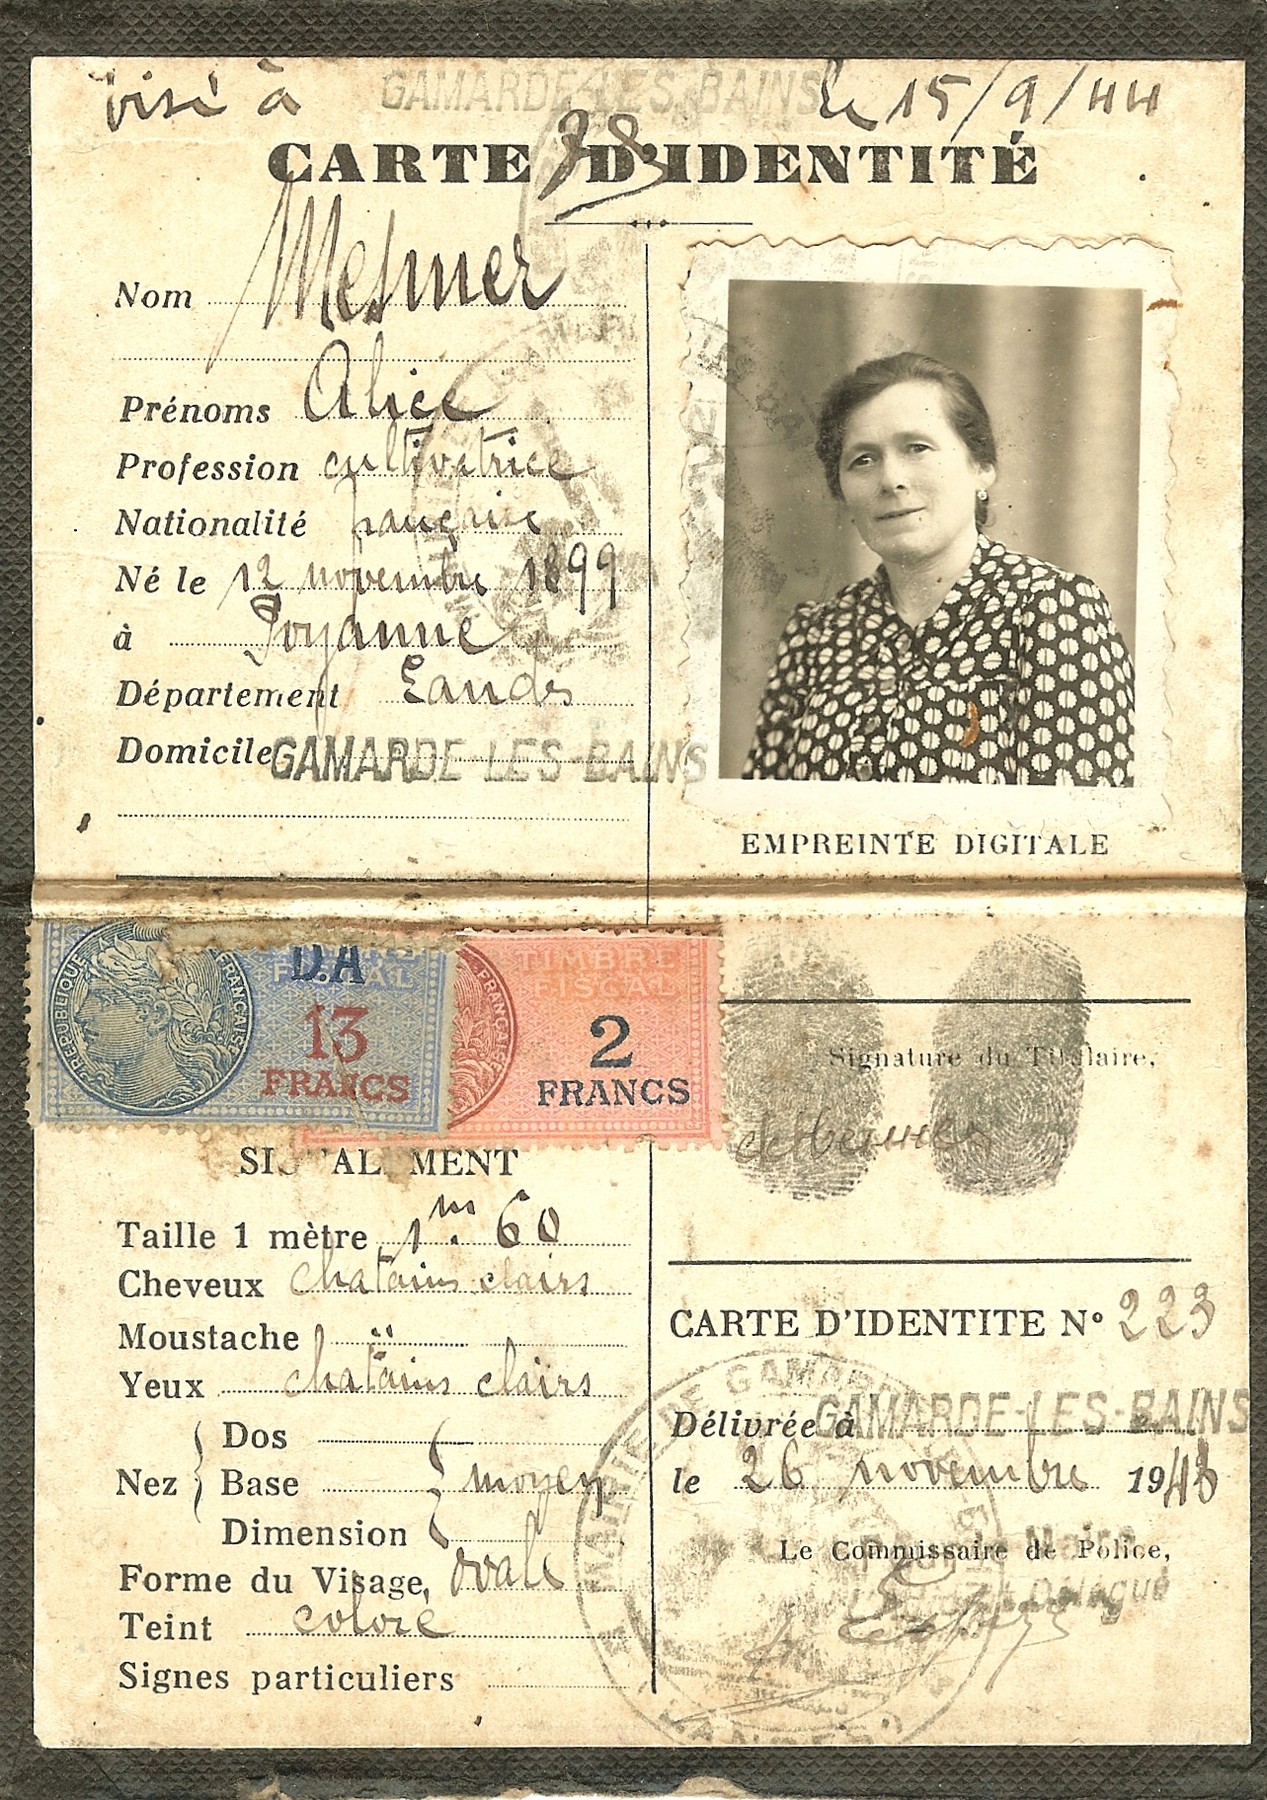 visé à GAMARDE-LES-BAINS le 15/9/44
CARTE D'IDENTITÉ
Nom Mesmer
Prénoms Alice
Profession cultivatrice
Nationalité française
Né le 12 novembre 1899
à Poyanne
Département Landes
Domicile GAMARDE-LES-BAINS
EMPREINTE DIGITALE
RÉPUBLIQUE FRANÇAISE
D.A
FISCAL
13
FRANCS
TIMBRE
FISCAL
2
FRANCS
Signature du Titulaire,
SI AL MENT
Taille 1 mètre 1m. 60
Cheveux chatains clairs
Moustache
Yeux chatains clairs
Nez
Dos
Base moyen
Dimension
Forme du Visage, ovale
Teint coloré
Signes particuliers
CARTE D'IDENTITE N° 223
Délivrée à GAMARDE-LES-BAINS
le 26 novembre 1943
Le Commissaire de Police,
Maire
Délégué
MAIRIE DE GAMARDE
LANDES